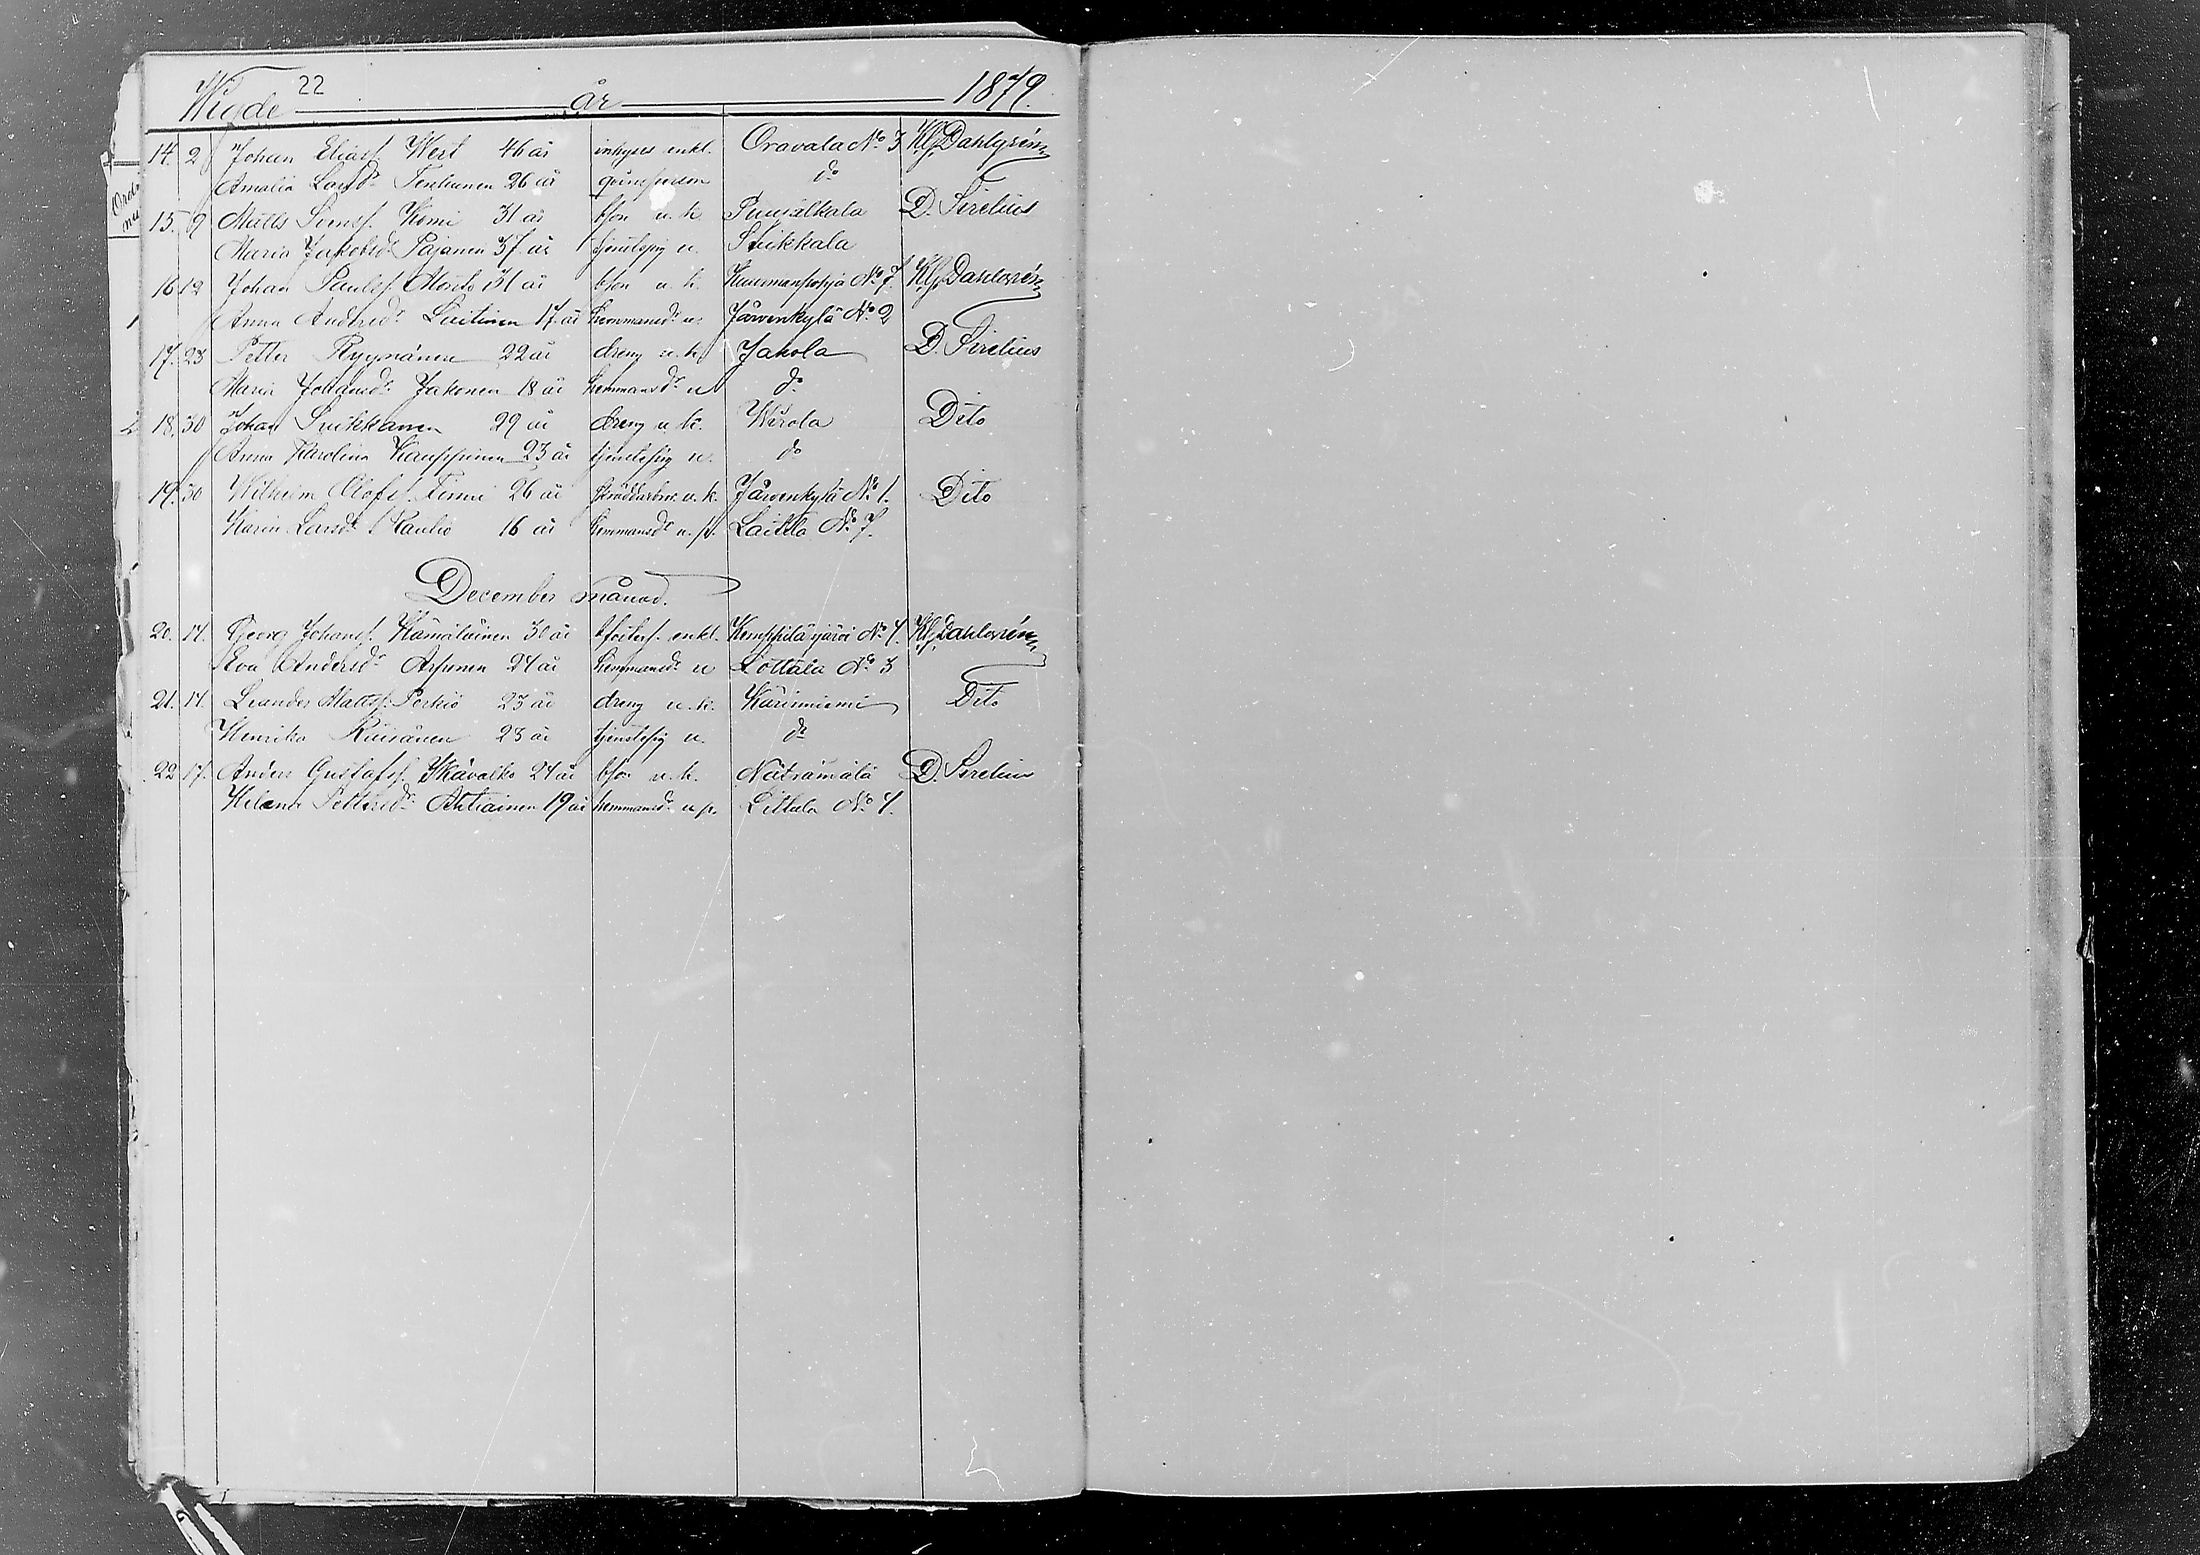 22
Wigde år 1879.
14. 2 Johan Eliass. West 46 år inhyses enkl. Oravala No 3 K.G. Dahlgrén
Amalia Larsdr Tenhunen 26 år qvinsperson do
15. 9 Matts Simss. Komi 31 år bson u.k. Puusalkala D. Sirelius
Maria Jakobsdr Pajanen 37 år tjenstepig u. Suikkala
16 12 Johan Paulss. 31 år bson u.k. No 7 K.G. Dahlgrén
Anna Andersdr Laitinen 17 år hemmansdr u. Järvenkylä No 2
17. 23 Petter Ryynänen 22 år dreng u.k. Jakola D. Sirelius
Maria Johansdr Jakonen 18 år hemmansdr u do
18. 30 Johan Suikkanen 29 år dreng u.k. Wirola Dito
Anna Karolina Kauppinen 23 år tjenstepig u. do
19. 30 Wilhelm Olofss. Tenni 26 år u.k. Järvenkylä No 1. Dito
Karin Larsdr Kaukio 16 år hemmansdr u. p. Laitila No 7.
December månad.
20. 14. Georg Johanss. Hämäläinen 30 år enkl. Kemppilänjärvi No 4. K.G. Dahlgrén
Eva Andersdr Arponen 24 år hemmansdr u Lottala No 3
21. 14. Leander Mattss. Perkiö 23 år dreng u.k. Kärinniemi Dito
Henrika Räisänen 23 år tjenstepig u. do
22 17. Anders Gustafss. Skävalko 24 år bson u.k. Näträmälä D. Sirelius
Helena Pettersdr Ahtiainen 19 år hemmansdr u p. Littala No 4.